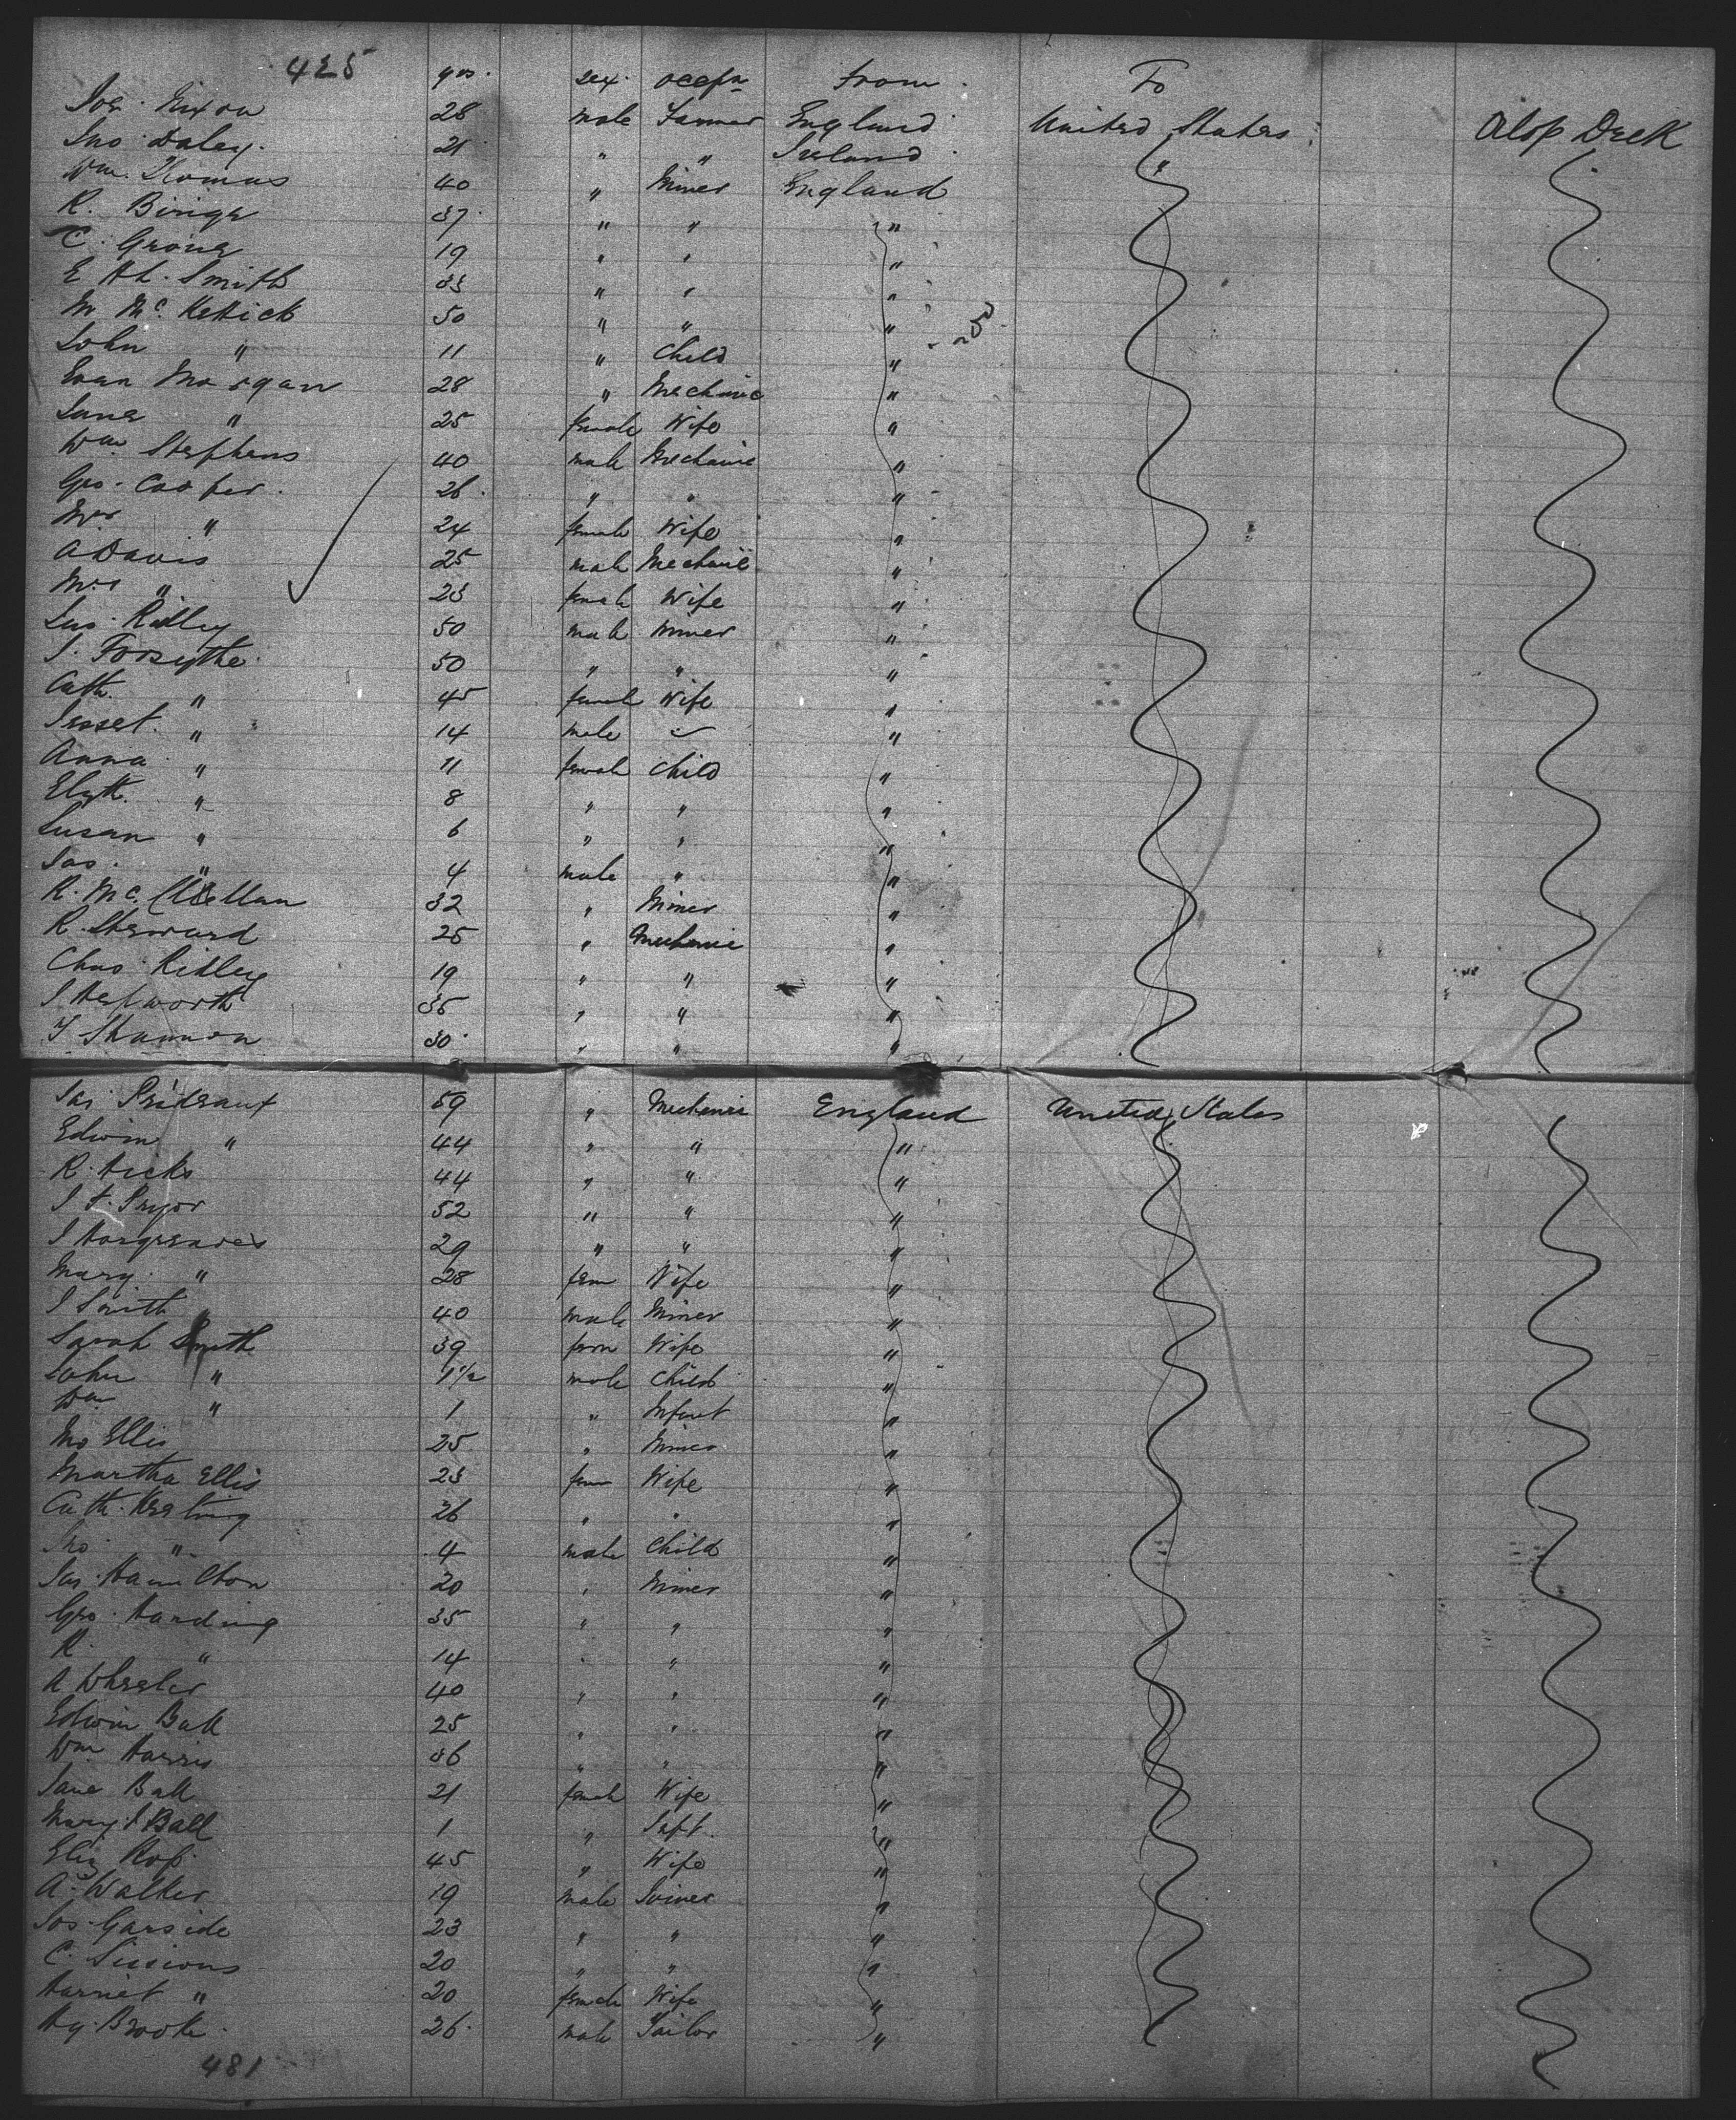 425 yrs. sex. occpn from To
Jos. Nixon 28 male Farmer England United States Orlop Deck
Jno Daley. 21 " " Ireland "
Wm. Thomas 40 " Miner England
R. 37 " " "
C. 19 " " "
E Hh. Smith 33 " " "
M Mc. Kettick 50 " " "
John " 11 " Child "
Evan Morgan 28 " Mechanic "
Jane " 25 female Wife "
Wm. Stephens 40 male Mechanic "
Geo. Cooper. 26. " " "
Mrs " 24 female Wife "
A Davis 25 male Mechanic "
Mrs " 23 female Wife "
Jas. Ridley 50 male Miner "
J. Forsythe. 50 " " "
Cath. " 45 female Wife "
" 14 male "
Anna " 11 female Child "
Elizth. " 8 " " "
Susan " 6 " " "
Jas. " 4 male " "
R. Mc. Clellan 32 " Miner "
R. Steward 25 " Mechanic "
Chas Ridley 19 " " "
J Hepworth 35 " " "
T Shannon 30. " " "
Jas Prideaux 59 " Mechanic England United States
Edwin " 44 " " "
R. Hicks 44 " " "
J. Pryor 52 " " "
J Hargreaves 29 " " "
Mary. " 28 fem Wife "
J Smith 40 male Miner "
Sarah Smith 39 fem Wife "
John " male Child "
Wm " 1 " Infant "
Jno Ellis 25 " Miner "
Martha Ellis 23 fem Wife "
Cath. Keating 26 " " "
Jno " 4 male Child "
Jas. Hamilton 20 " Miner "
Geo. Harding 35 " " "
R. " 14 " " "
A Wheeler 40 " " "
Edwin Ball 25 " " "
Wm Harris 36 " " "
Jane Ball 21 female Wife "
Mary J Ball 1 " Inft. "
Eliz Ross 45 " Wife "
A. Walker 19 male Joiner "
Jos. Garside 23 " " "
C. Sissions 20 " " "
Harriet " 20 female Wife "
Hy. Brook. 26. male Tailor "
481